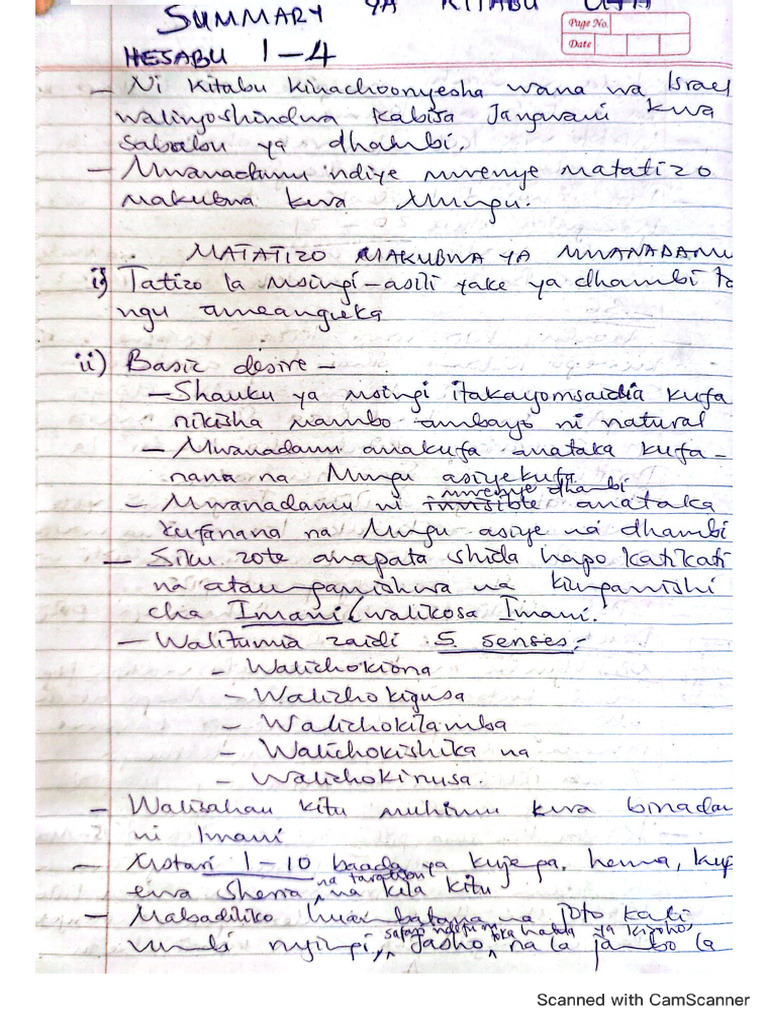 SUMMARY YA KITABU
Page No.
HESABU 1-4
Date
- Ni kitabu kinachoonyesha wana wa Israel
walinyoshindwa kabisa Jangwani kwa
sababu ya dhambi.
- Mwanadamu ndiye mwenye matatizo
makubwa kwa Mungu.
MATATIZO MAKUBWA YA MWANADAMU
i) Tatizo la msingi - asili yake ya dhambi ta
ngu ameanguka
ii) Basic desire -
- Shauku ya msingi itakayomsaidia kufa
nikisha mambo ambayo ni natural
- Mwanadamu anakufa anataka kufa-
nana na Mungu asiyekufa
mwenye dhambi
- Mwanadamu ni invisible anataka
kufanana na Mungu asiye na dhambi
- Siku zote anapata shida hapo katikati
na ataunganishwa na kiunganishi
cha Imani (walikosa Imani.
- Walitumia zaidi 5 senses:-
- Walichokiona
- Walichokigusa
- Walichokilamba
- Walichokishika na
- Walichokinusa.
- Walisahau kitu muhimu kwa binadam
ni Imani
- Mstari 1-10 baada ya kujepa, hema, kup
na taratibu
ewa Sheria na kila kitu
- Mabadiliko na joto kali,
safari ndefu ya kiroho,
vumbi nyingi, Jasho, na la jambo la
Scanned with CamScanner